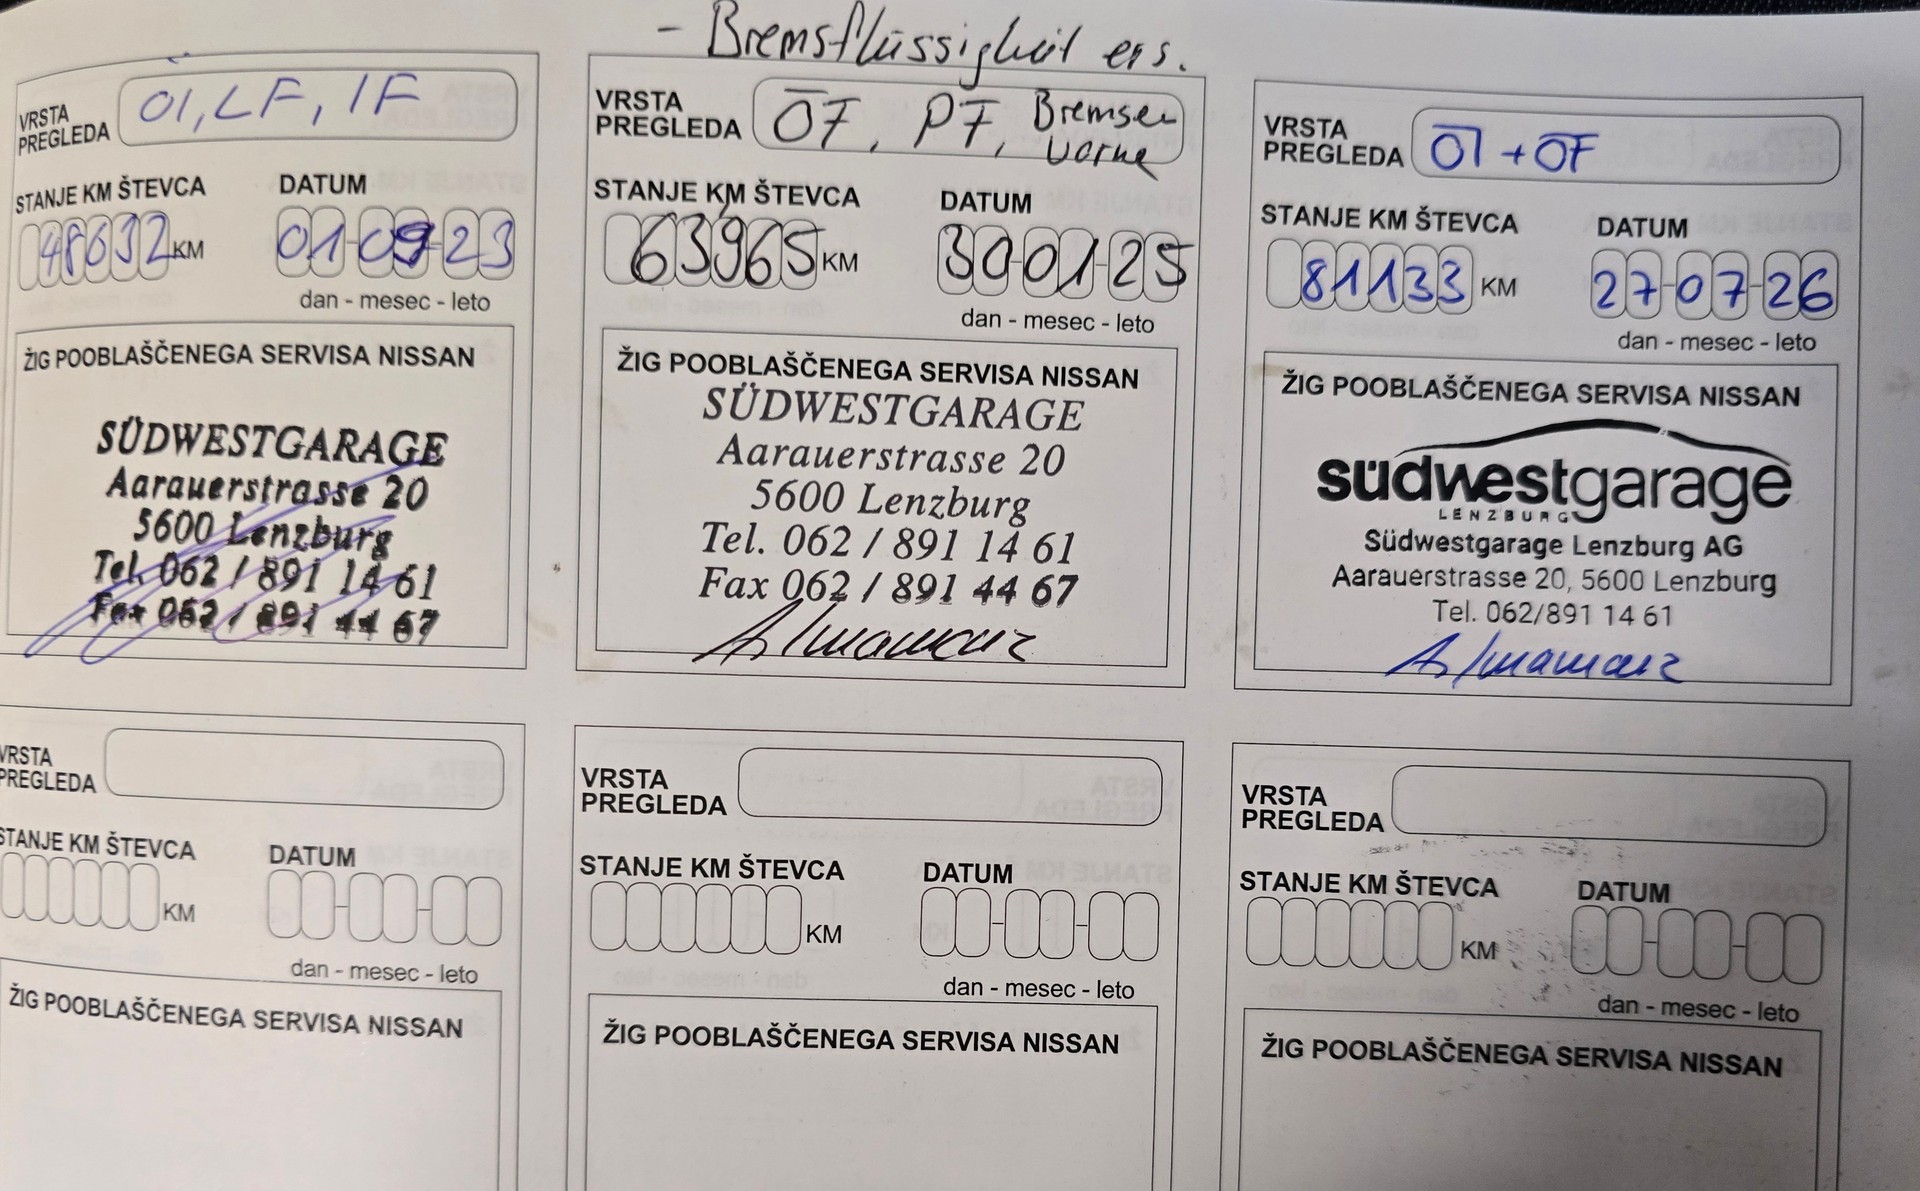 - Bremsflüssigkeit ers.
VRSTA
PREGLEDA
Öl, LF, IF
STANJE KM ŠTEVCA
DATUM
48632 KM
01-09-23
dan - mesec - leto
ŽIG POOBLAŠČENEGA SERVISA NISSAN
SÜDWESTGARAGE
Aarauerstrasse 20
5600 Lenzburg
Tel. 062 / 891 14 61
Fax 062 / 891 44 67
VRSTA
PREGLEDA
ÖF, PF, Bremsen
vorne
STANJE KM ŠTEVCA
DATUM
63965 KM
30-01-25
dan - mesec - leto
ŽIG POOBLAŠČENEGA SERVISA NISSAN
SÜDWESTGARAGE
Aarauerstrasse 20
5600 Lenzburg
Tel. 062 / 891 14 61
Fax 062 / 891 44 67
VRSTA
PREGLEDA
Öl + ÖF
STANJE KM ŠTEVCA
DATUM
81133 KM
27-07-26
dan - mesec - leto
ŽIG POOBLAŠČENEGA SERVISA NISSAN
südwestgarage
LENZBURG
Südwestgarage Lenzburg AG
Aarauerstrasse 20, 5600 Lenzburg
Tel. 062/891 14 61
VRSTA
PREGLEDA
STANJE KM ŠTEVCA
DATUM
KM
dan - mesec - leto
ŽIG POOBLAŠČENEGA SERVISA NISSAN
VRSTA
PREGLEDA
STANJE KM ŠTEVCA
DATUM
KM
dan - mesec - leto
ŽIG POOBLAŠČENEGA SERVISA NISSAN
VRSTA
PREGLEDA
STANJE KM ŠTEVCA
DATUM
KM
dan - mesec - leto
ŽIG POOBLAŠČENEGA SERVISA NISSAN